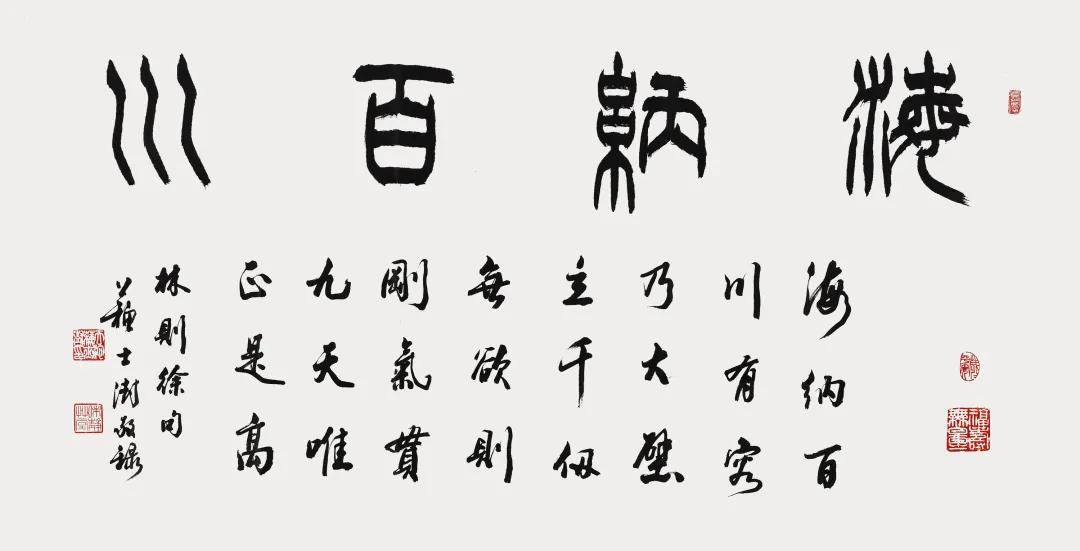 海納百川
海納百
川有容
乃大壁
立千仞
無欲則
剛氣貫
九天唯
正是高
林則徐句
蘇士澍敬錄